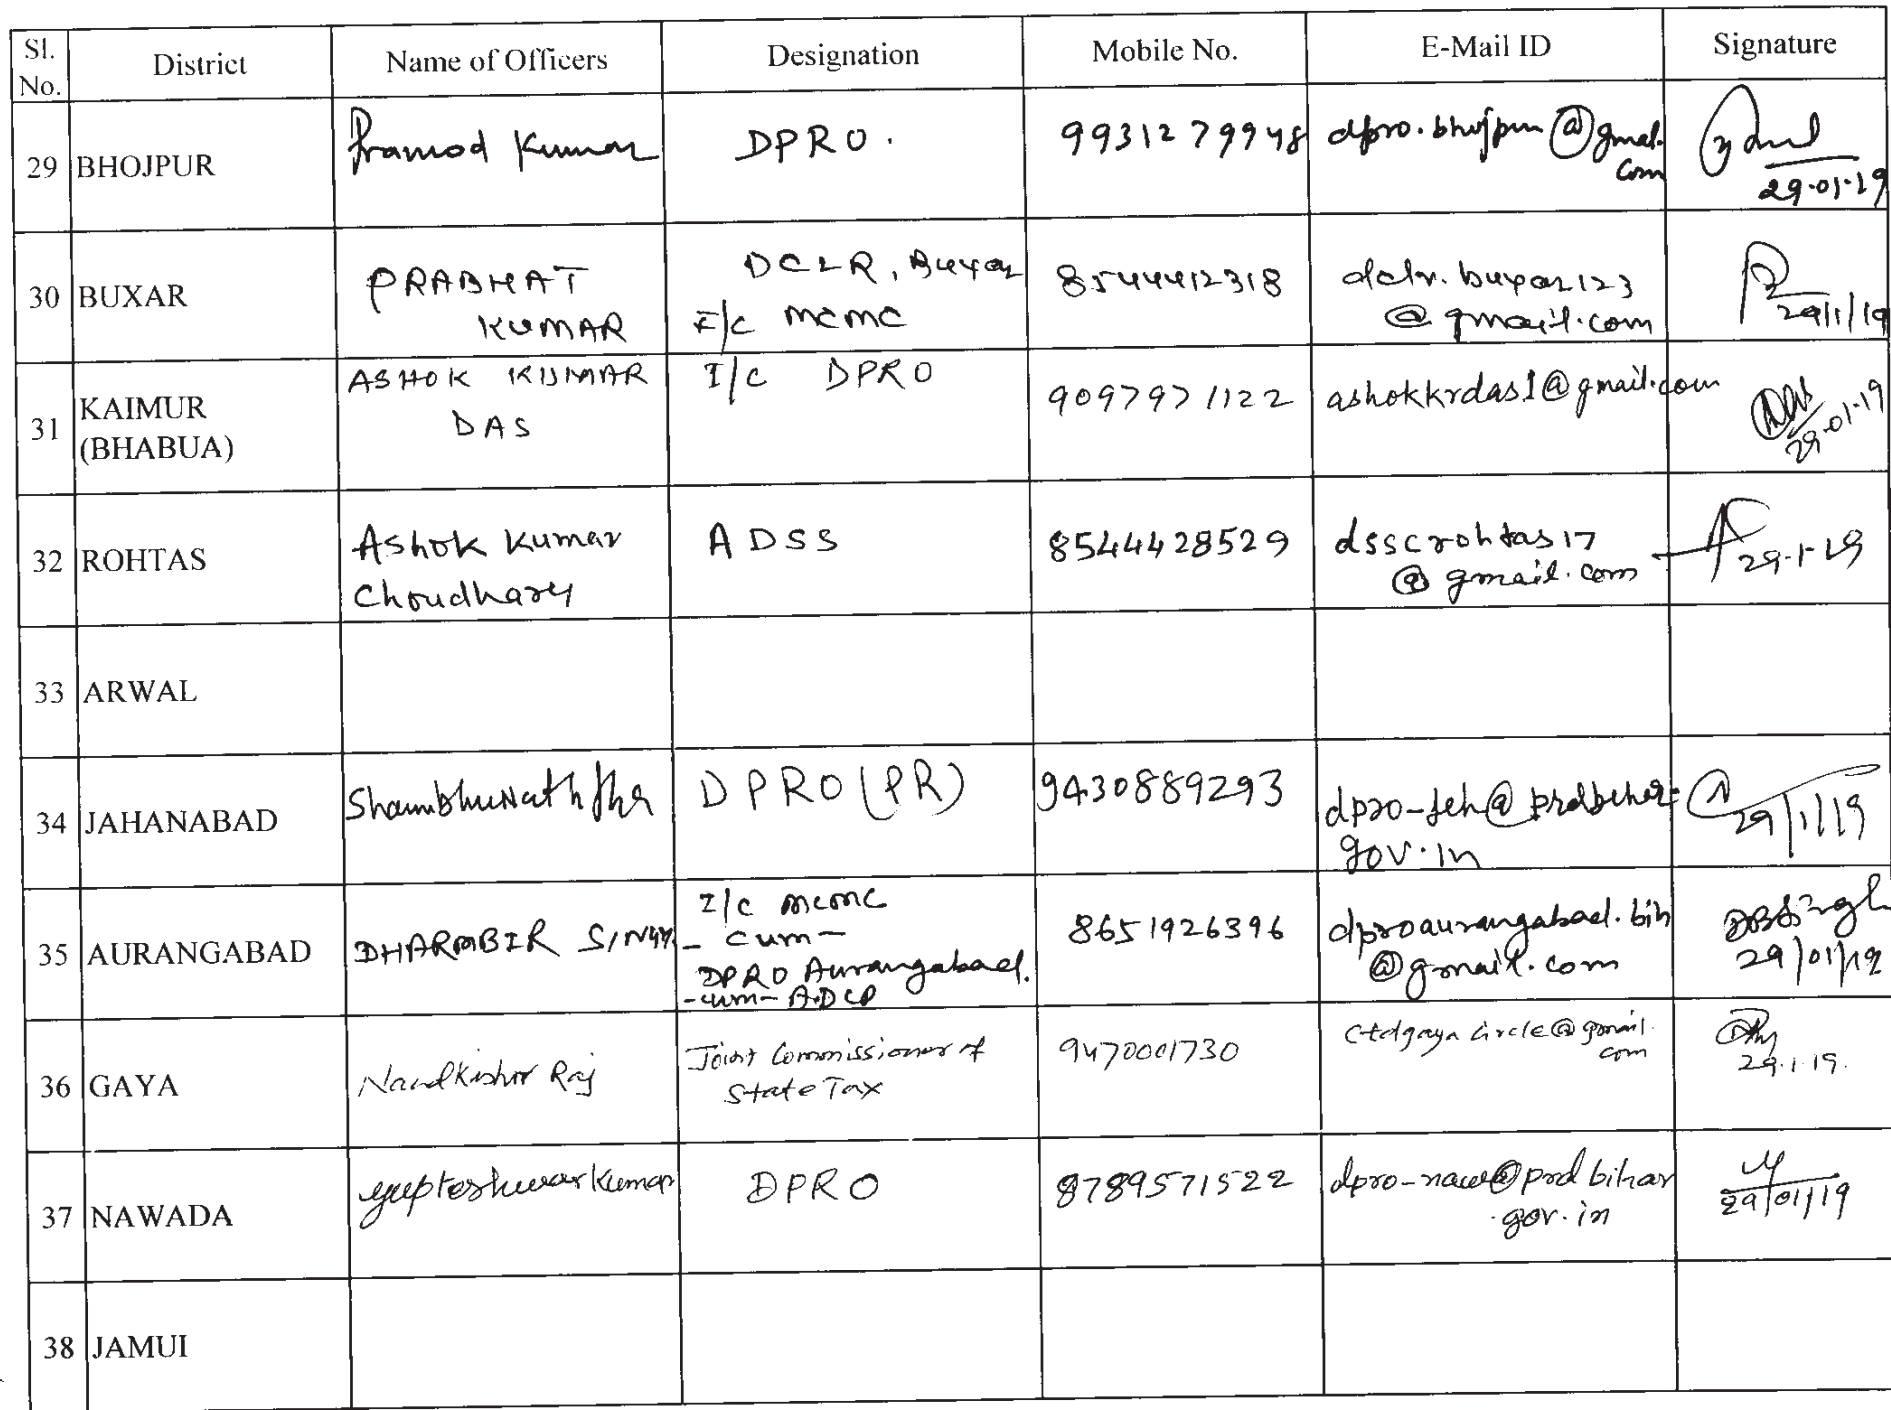 Sl. No. District Name of Officers Designation Mobile No. E-Mail ID Signature
29 BHOJPUR Pramod Kumar DPRO. 9931279948 dpro.bhojpur@gmail.
com
29.01.19
30 BUXAR PRABHAT DCLR, Buxar 8544412318 dclr.buxar123
KUMAR I/C MCMC @gmail.com 29/1/19
31 KAIMUR (BHABUA) ASHOK KUMAR I/C DPRO 9097971122 ashokkrdas1@gmail.com
DAS 29.01.19
32 ROHTAS Ashok Kumar ADSS 8544428529 dsscrohtas17
Choudhary @gmail.com 29.1.19
33 ARWAL
34 JAHANABAD Shambhunath Jha DPRO (PR) 9430889293 dpro-jeh@prdbihar.
gov.in 29/1/19
35 AURANGABAD DHARMBIR SINGH I/C MCMC 8651926396 dproaurangabad.bih DBSingh
-cum- @gmail.com 29/01/19
DPRO Aurangabad.
-cum-ADCP
36 GAYA Nandkishor Raj Joint Commissioner of 9470001730 ctdgaya circle@gmail.
State Tax com 29.1.19.
37 NAWADA Gupteshwar Kumar DPRO 8789571522 dpro-naw@prdbihar
.gov.in 29/01/19
38 JAMUI